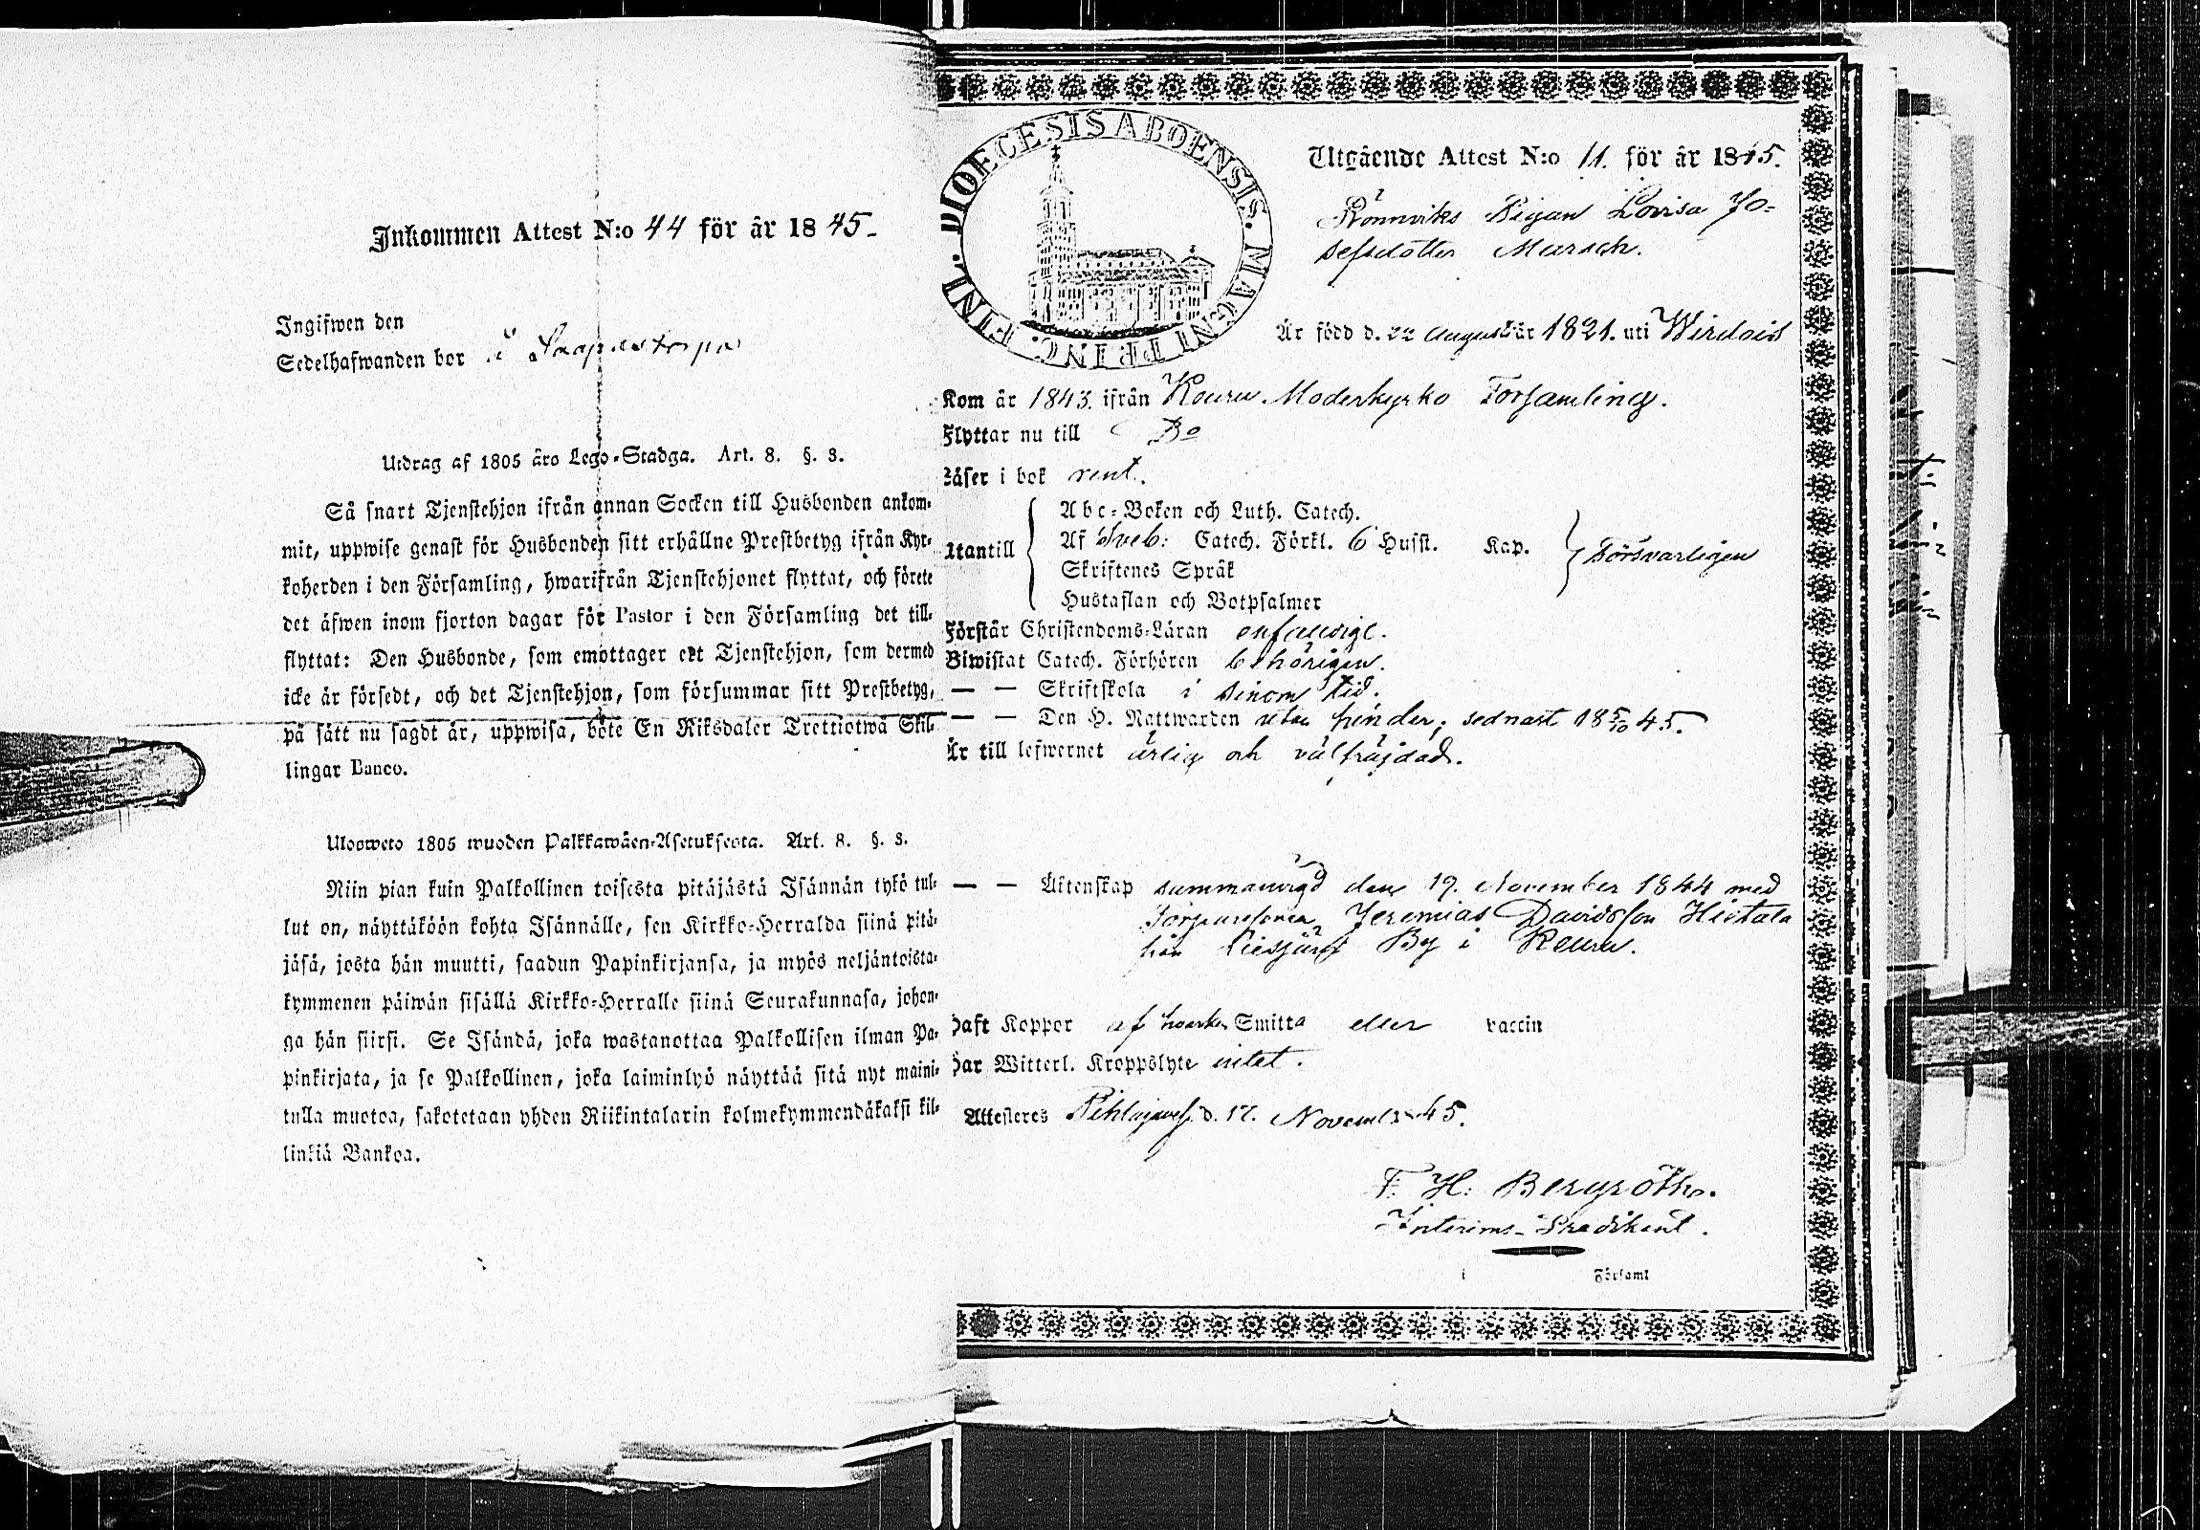 Inkommen Attest N:o 44 för år 1845
Ingifwen den
Sedelhafwanden bor i
Utdrag af 1805 års Lego-Stadga. Art. 8. §. 8.
Så snart Tjenstehjon ifrån annan Socken till Husbonden ankom-
mit, uppwise genast för Husbonden sitt erhållne Prestbetyg ifrån Kyr-
koherden i den Församling, hwarifrån Tjenstehjonet flyttat, och förete
det äfwen inom fjorton dagar för Pastor i den Församling det till-
flyttat: Den Husbonde, som emottager ett Tjenstehjon, som dermed
icke är försedt, och det Tjenstehjon, som försummar sitt Prestbetyg,
på sätt nu sagdt är, uppwisa, böte En Riksdaler Trettiotwå Skil-
lingar Banco.
Ulosweto 1805 wuoden Palkkawäen-Asetuksesta. Art. 8. §. 8.
Niin pian kuin Palkollinen toisesta pitäjästä Isännän tykö tul-
lut on, näyttäköön kohta Isännälle, sen Kirkko-Herralda siinä pitä-
jäsä, josta hän muutti, saadun Papinkirjansa, ja myös neljäntoista-
kymmenen päiwän sisällä Kirkko-Herralle siinä Seurakunnasa, johon-
ga hän siirsi. Se Isändä, joka wastanottaa Palkollisen ilman Pa-
pinkirjata, ja se Palkollinen, joka laiminlyö näyttää sitä nyt maini-
tulla muotoa, sakotetaan yhden Riikintalarin kolmekymmendäkaksi kil-
linkiä Bankoa.
DIOECESIS ABOENSIS. MAGNI PRINC. FINL.
Utgående Attest N:o 11. för år 1845.
Rönnviks Pigan Lovisa Jo-
sefsdotter
Är född d. 22 Augusti år 1821. uti Wirdois
Kom år 1843. ifrån Keuru Moderkyrko Församling.
Flyttar nu till Do
Läser i bok rent.
Utantill
Abc-Boken och Luth. Catech.
Af Sveb: Catech. Förkl. 6 Husst. Kap. Försvarligen
Skriftenes Språk
Hustaflan och Botpsalmer
Förstår Christendoms-Läran enfaldigt.
Biwistat Catech. Förhören behörigen.
— — Skriftskola i sinom tid.
— — Den H. Nattwarden utan hinder, sednast 18 5/10 45.
Är till lefwernet ärlig och välfräjdad.
— — Äktenskap sammanvigd den 19. November 1844 med
Jeremias Davidsson
från Liesjärvi By i Keuru.
Haft Koppor af Smitta eller vaccin
Har Witterl. Kroppslyte intet.
Attesteres d. 17. November 45.
F. H. Bergroth.
Interims-Predikant.
i Församl